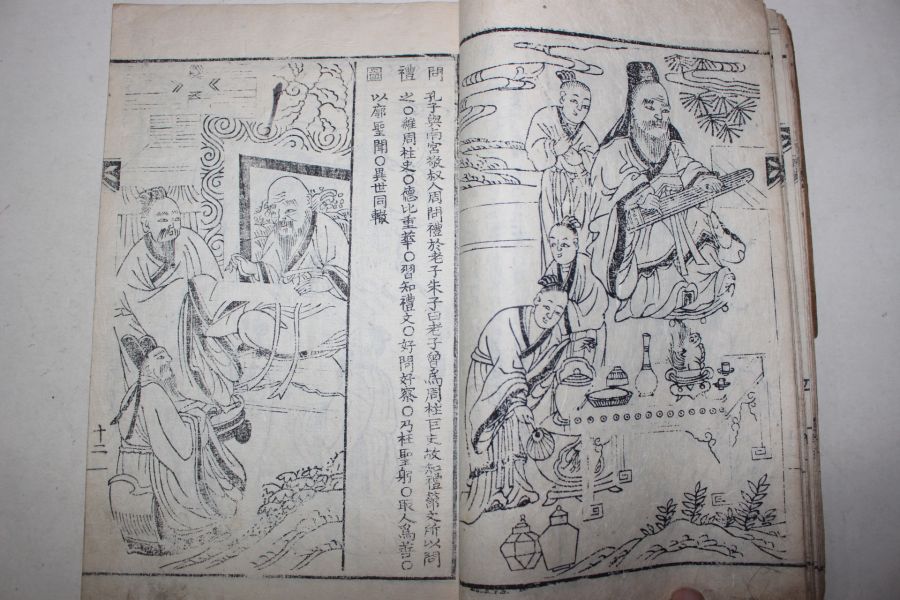 問禮圖
孔子與南宮敬叔入周問禮於老子朱子曰老子曾爲周柱巨史故知禮節文所以問
之○雖周柱史○德比重華○習知禮文○好問好察○乃在聖躬○取人爲善○
以廓聖聞○異世同轍
十二